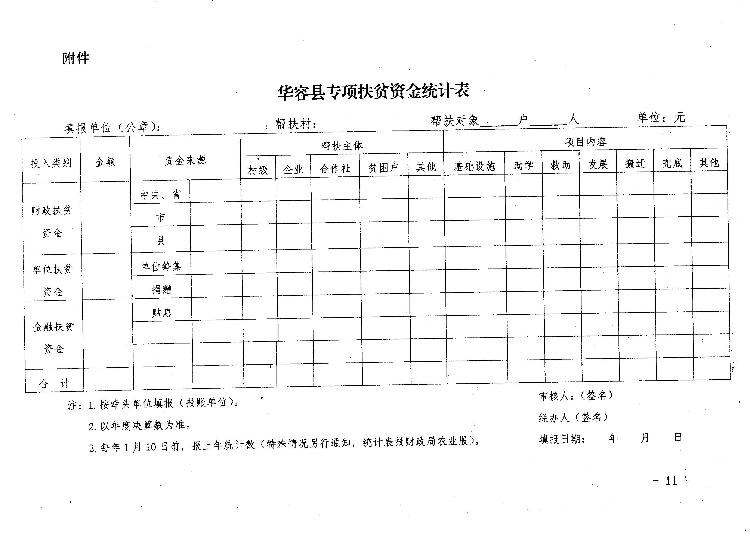 附件
华容县专项扶贫资金统计表
填报单位(公章): 帮扶村: 帮扶对象 户 人 单位:元
投入类别 金额 资金来源 帮扶主体 项目内容
村级 企业 合作社 贫困户 其他 基础设施 助学 救助 发展 搬迁 兜底 其他
财政扶贫资金 中央、省
市
县
单位扶贫资金 单位筹集
捐赠
金融扶贫资金 贴息
合计
注:1.按牵头单位填报(拨款单位)。 审核人:(签名)
2.以年度决算数为准。 经办人(签名)
3.每年1月10日前,报上年统计数(特殊情况另行通知,统计表报财政局农业股)。 填报日期: 年 月 日
- 11